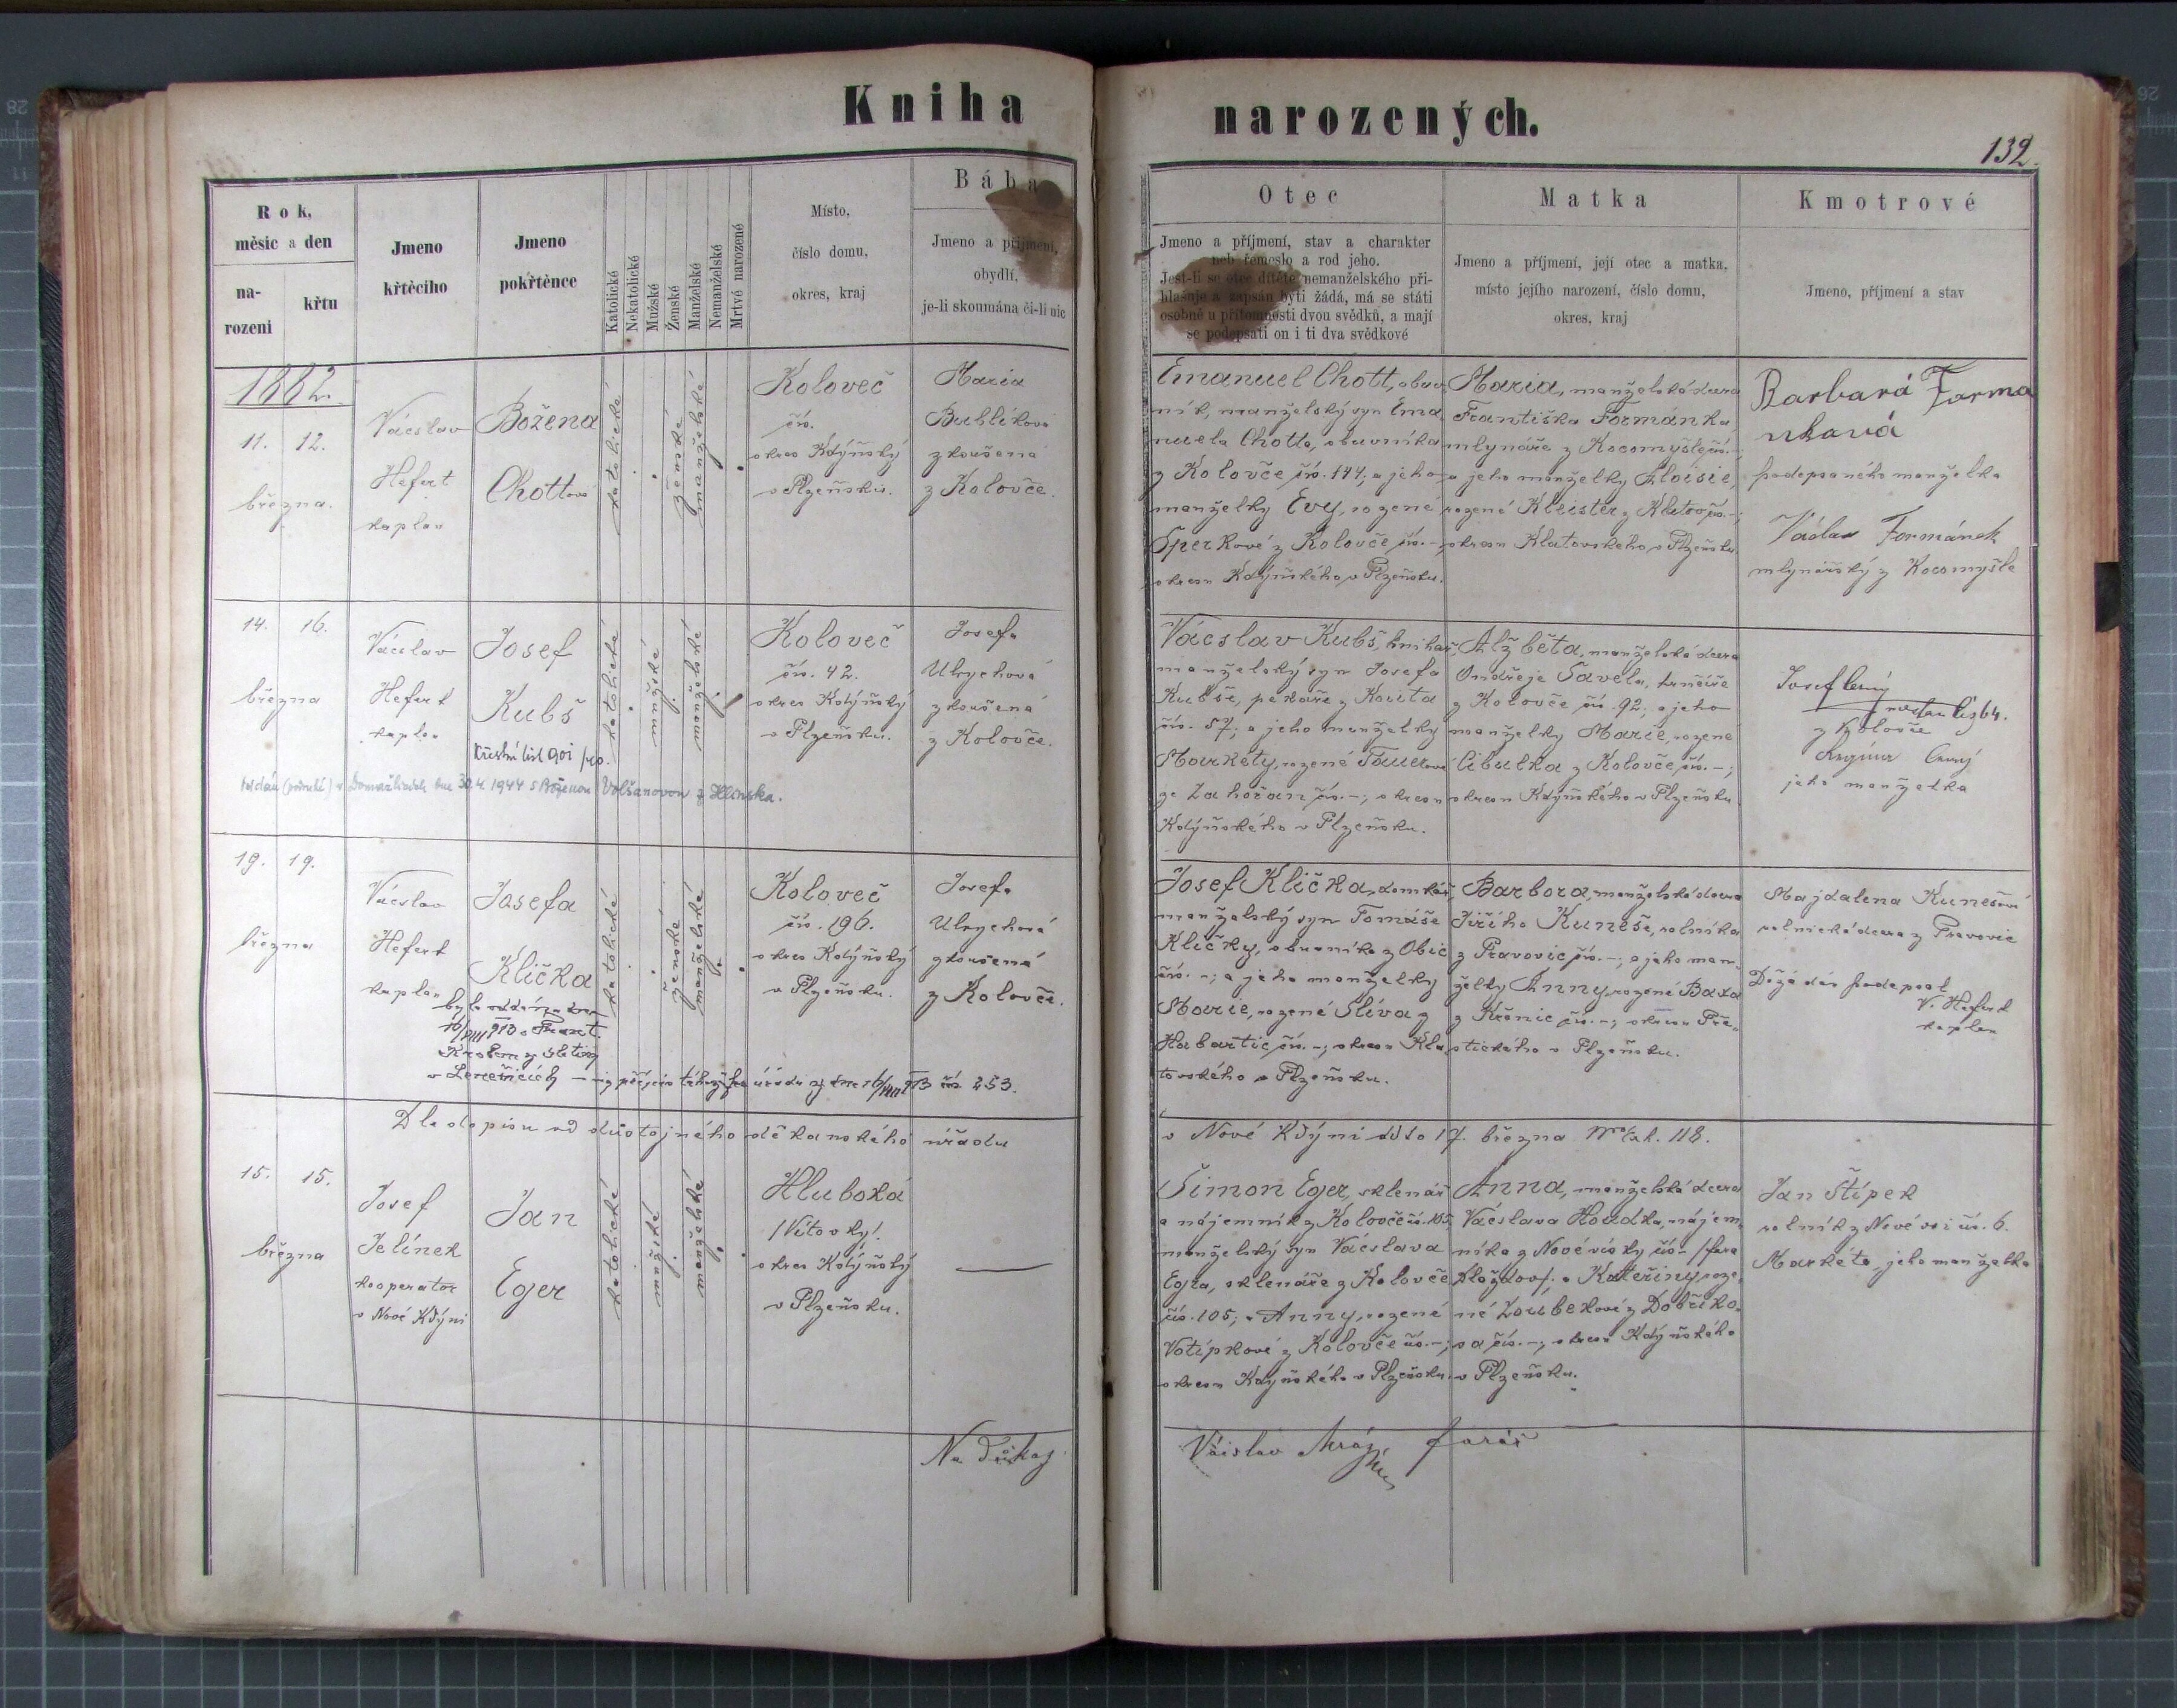 Kniha
narozených.
132.
Rok,
měsíc a den
na-
rozeni
křtu
Jmeno
křtěcího
Jmeno
pokřtěnce
Katolické
Nekatolické
Mužské
Ženské
Manželské
Nemanželské
Mrtvé narozené
Místo,
číslo domu,
okres, kraj
Bába
Jmeno a příjmení,
obydlí,
je-li skoumána či-li nic
Otec
Jmeno a příjmení, stav a charakter
neb řemeslo a rod jeho.
Jest-li se otec dítěte nemanželského při-
hlašuje a zapsán býti žádá, má se státi
osobně u přítomnosti dvou svědků, a mají
se podepsati on i ti dva svědkové
Matka
Jmeno a příjmení, její otec a matka,
místo jejího narození, číslo domu,
okres, kraj
Kmotrové
Jmeno, příjmení a stav
1882.
11. 12.
března.
Vácslav
Hefert
kaplan
Božena
Chottová
katolické
ženské
manželské
Koloveč
čís.
okres Kdýňský
v Plzeňsku.
Maria
Bublíková
zkoušená
z Kolovče.
Emanuel Chott, obuv
ník, manželský syn Ema
nuela Chotta, obuvníka
z Kolovče čís. 144; a jeho
manželky Evy, rozené
Šperkové z Kolovče čís. -;
okresu Kdýňského v Plzeňsku.
Maria, manželská dcera
Františka Formánka,
mlynáře z Kocomyšle čís. -;
a jeho manželky Aloisie,
rozené Kleister z Klatov čís. -;
okresu Klatovského v Plzeňsku.
Barbará Forma
nková
podepsaného manželka
Václav Formánek
mlynářský z Kocomyšle
14. 16.
března
Václav
Hefert
kaplan
Josef
Kubš
Křestní list 901/40.
oddán (podruhé) v Domažlicích dne 30.4. 1944 s Boženou Volšanovou z Hlinska.
katolické
mužské
manželské
Koloveč
čís. 42.
okres Kdýňský
v Plzeňsku.
Josefa
Ulrychová
zkoušená
z Kolovče.
Vácslav Kubš, knihař,
manželský syn Josefa
Kubše, pekaře z Kouta
čís. 57; a jeho manželky
Markéty, rozené Tauerové
ze Zahořan čís. -; okresu
Kdýňského v Plzeňsku.
Alžběta, manželská dcera
Ondřeje Savela, hrnčíře
z Kolovče čís. 92; a jeho
manželky Marie, rozené
Cibulka z Kolovče čís. -;
okresu Kdýňského v Plzeňsku
Josef Černý
z Kolovče
Regina Černý
jeho manželka
19. 19.
března
Vácslav
Hefert
kaplan
Josefa
Klička
byla oddána dne
16/VIII 913 s Frant.
v Lenešicích – viz přípis téhož far. úřadu ze dne 16/VIII 913 čís. 253.
katolické
ženské
manželské
Koloveč
čís. 196.
okres Kdýňský
v Plzeňsku.
Josefa
Ulrychová
zkoušená
z Kolovče.
Josef Klička, domkář,
manželský syn Tomáše
Kličky, obuvníka z Obic
čís. -; a jeho manželky
Marie, rozené Slíva z
Habartic čís. -; okresu Kla
tovského v Plzeňsku.
Barbora, manželská dcera
Jiřího Kuneše, rolníka
z Pravovic čís. -; a jeho man-
želky Anny, rozené Baxa
z Křenic čís. -; okresu Pře-
stického v Plzeňsku.
Majdalena Kunešová
rolnická dcera z Pravovic
V. Hefert
kaplan
Dle dopisu od důstojného děkanského úřadu
v Nové Kdýni ddto 17. března Nro exh. 118.
15. 15.
března
Josef
Jelínek
kooperator
v Nové Kdýni
Jan
Eger
katolické
mužské
manželské
Hluboká
/Vítovky/.
okres Kdýňský
v Plzeňsku.
Šimon Eger, sklenář
a nájemník z Kolovče čís. 105,
manželský syn Vácslava
Egra, sklenáře z Kolovče
čís. 105; a Anny, rozené
Votípkové z Kolovče čís. -;
okresu Kdýňského v Plzeňsku.
Anna, manželská dcera
Vácslava Houdka, nájem
níka z Nové vísky čís. - /fara
Kateřiny, roze
né Zoubekové z Dobříko
va čís. -; okresu Kdýňského
v Plzeňsku.
Jan Štípek
rolník z Nové vsi čís. 6.
Markéta, jeho manželka
Na důkaz
Václav Mráz,
farář